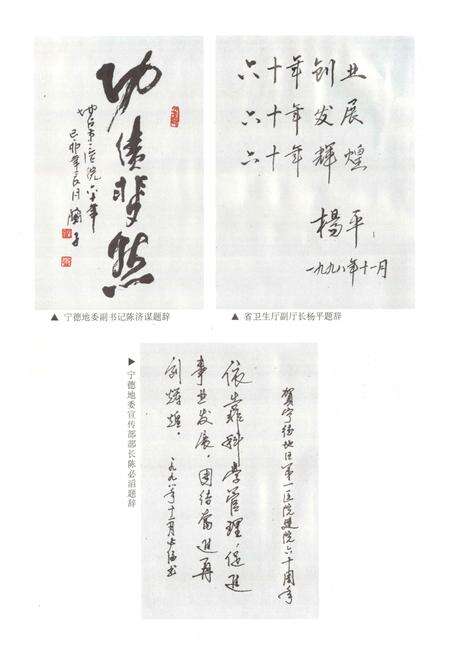 功绩斐然
六十年创业
六十年发展
六十年辉煌
杨平
一九九八年十一月
▲ 宁德地委副书记陈济谋题辞
▲ 省卫生厅副厅长杨平题辞
▶宁德地委宣传部部长陈必滔题辞
贺宁德地区第一医院建院六十周年
依靠科学管理,促进
事业发展,团结奋进再
创辉煌。
一九九八年十一月